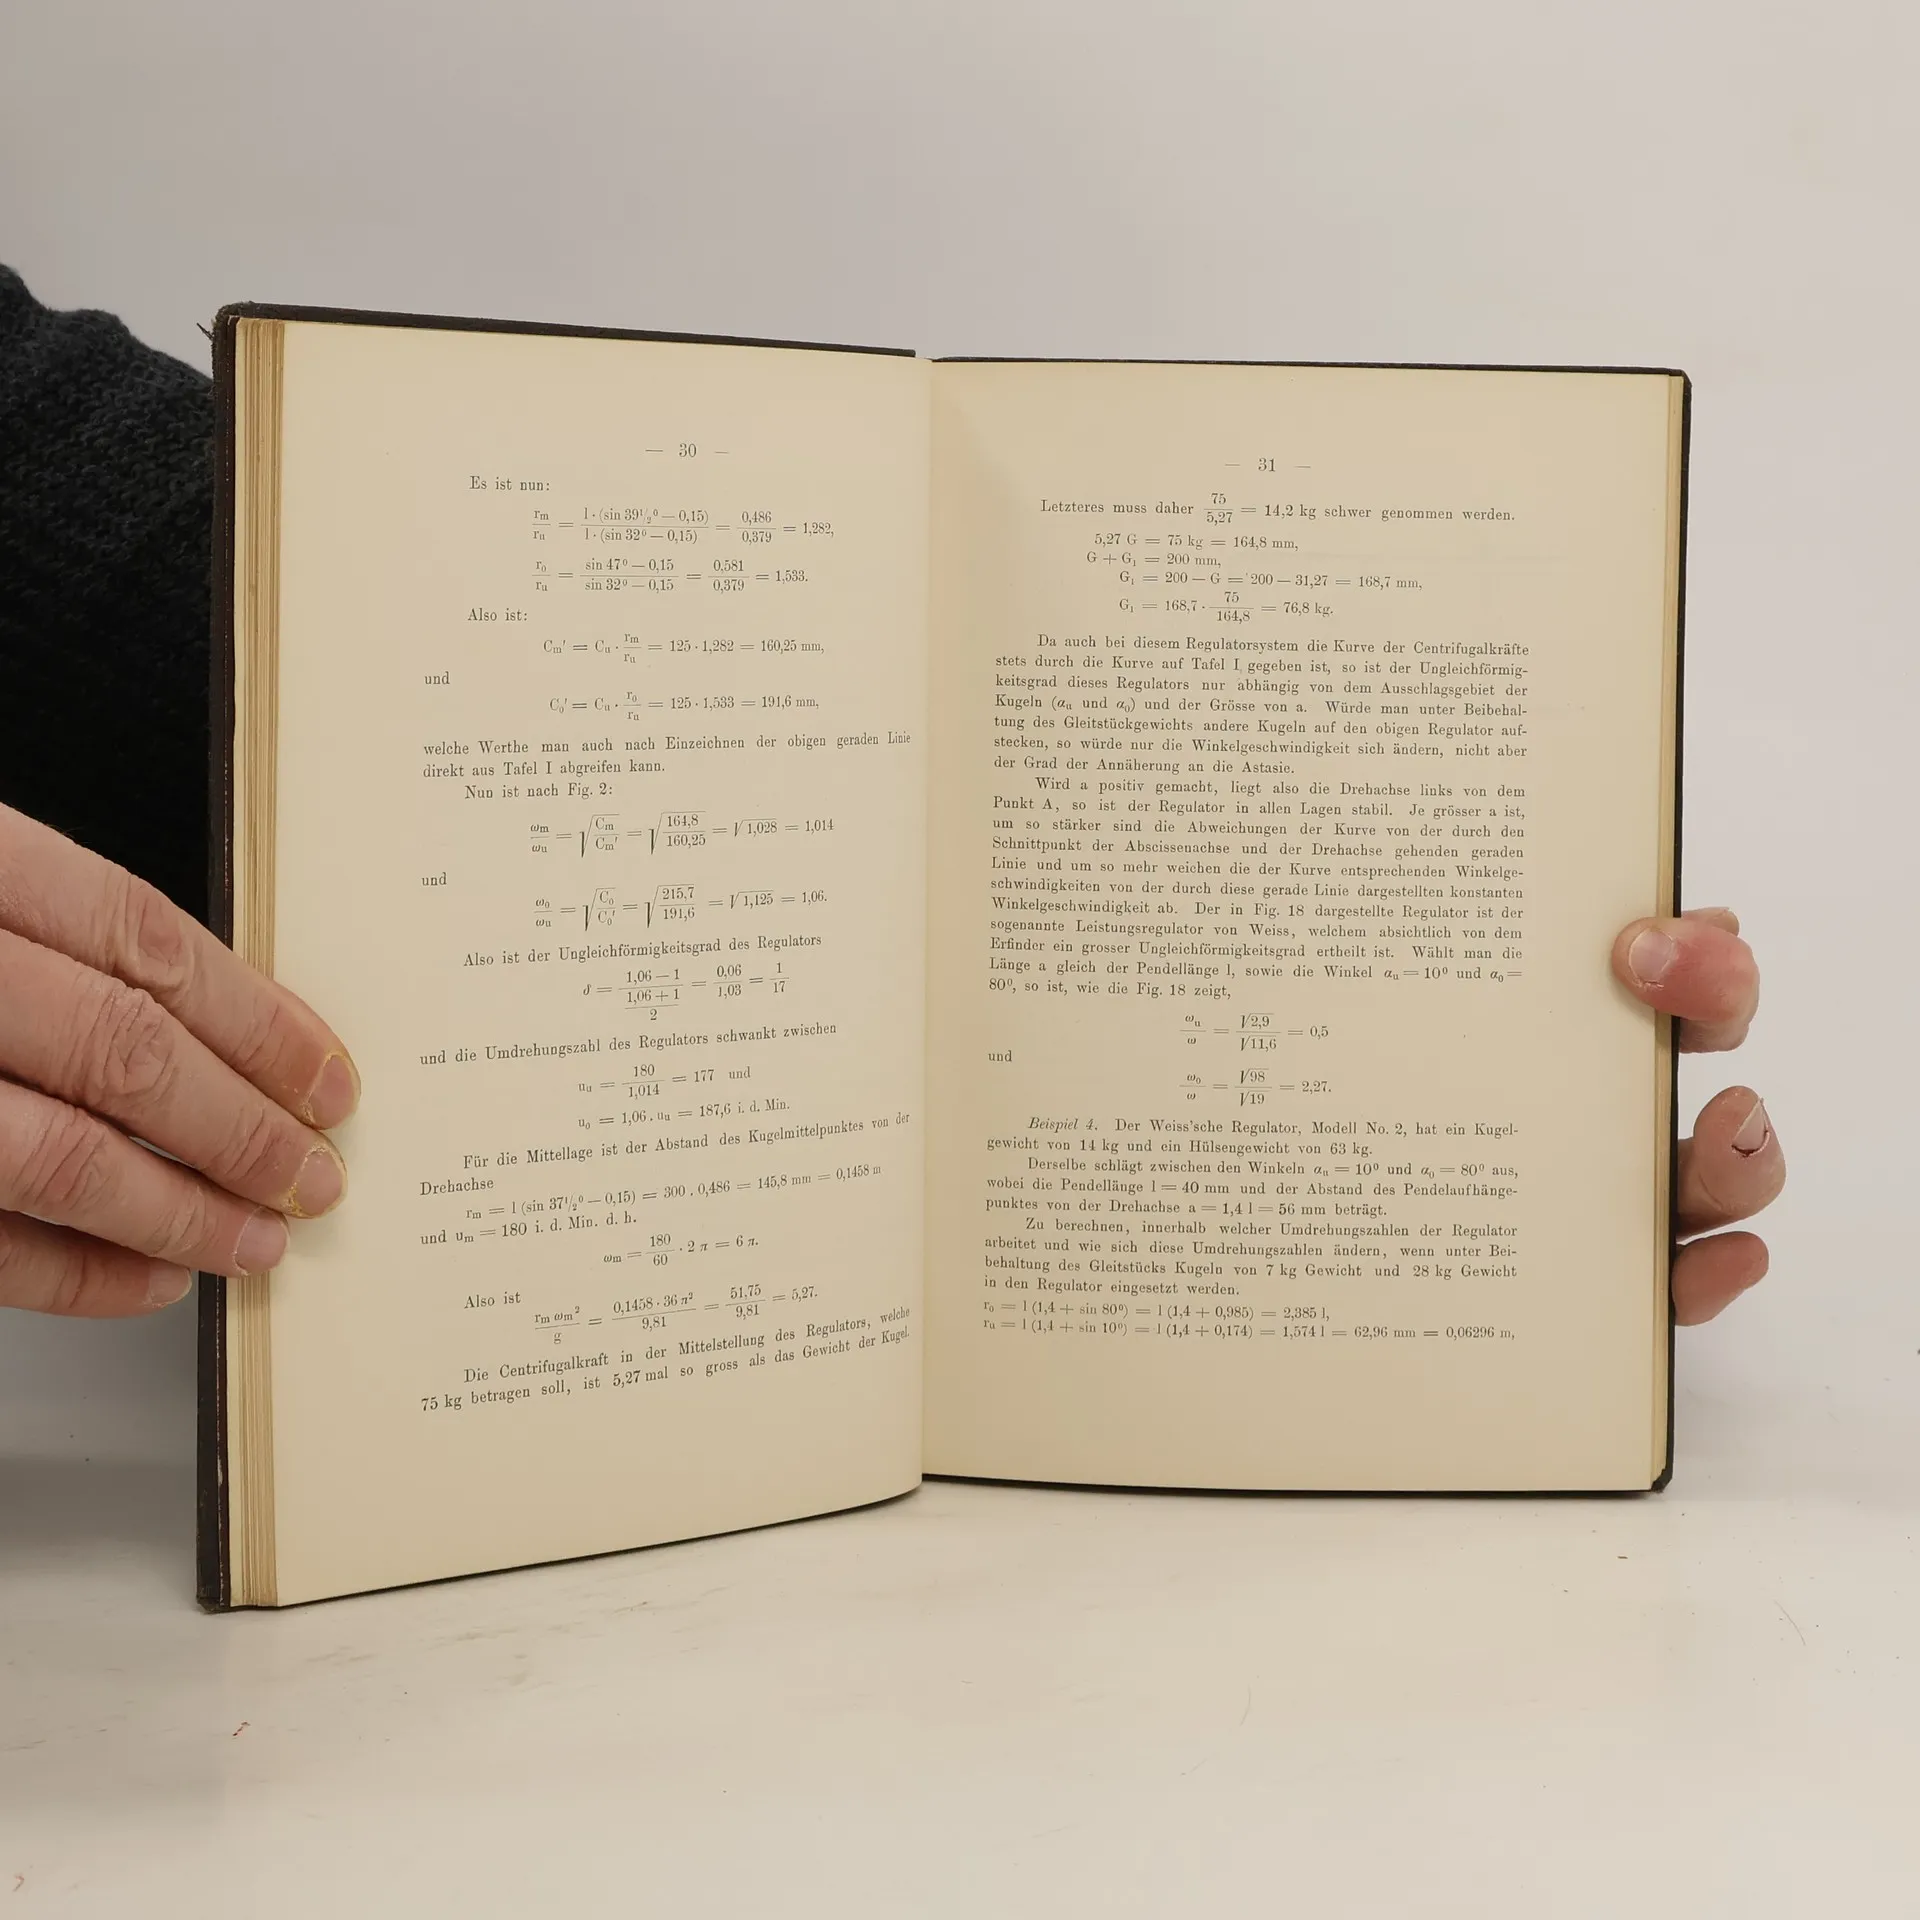 — 30 —
Es ist nun:
rm/ru = l · (sin 39 1/2⁰ — 0,15) / l · (sin 32⁰ — 0,15) = 0,486/0,379 = 1,282,
r₀/ru = sin 47⁰ — 0,15 / sin 32⁰ — 0,15 = 0,581/0,379 = 1,533.
Also ist:
Cm′ = Cu · rm/ru = 125 · 1,282 = 160,25 mm,
und
C₀′ = Cu · r₀/ru = 125 · 1,533 = 191,6 mm,
welche Werthe man auch nach Einzeichnen der obigen geraden Linie
direkt aus Tafel I abgreifen kann.
Nun ist nach Fig. 2:
ωm/ωu = √(Cm/Cm′) = √(164,8/160,25) = √1,028 = 1,014
und
ω₀/ωu = √(C₀/C₀′) = √(215,7/191,6) = √1,125 = 1,06.
Also ist der Ungleichförmigkeitsgrad des Regulators
δ = (1,06 — 1) / ((1,06 + 1)/2) = 0,06/1,03 = 1/17
und die Umdrehungszahl des Regulators schwankt zwischen
uu = 180/1,014 = 177 und
u₀ = 1,06 . uu = 187,6 i. d. Min.
Für die Mittellage ist der Abstand des Kugelmittelpunktes von der
Drehachse
rm = l (sin 37 1/2⁰ — 0,15) = 300 . 0,486 = 145,8 mm = 0,1458 m
und um = 180 i. d. Min. d. h.
ωm = 180/60 · 2 π = 6 π.
Also ist
rm ωm²/g = 0,1458 · 36 π²/9,81 = 51,75/9,81 = 5,27.
Die Centrifugalkraft in der Mittelstellung des Regulators, welche
75 kg betragen soll, ist 5,27 mal so gross als das Gewicht der Kugel.
— 31 —
Letzteres muss daher 75/5,27 = 14,2 kg schwer genommen werden.
5,27 G = 75 kg = 164,8 mm,
G + G₁ = 200 mm,
G₁ = 200 — G = 200 — 31,27 = 168,7 mm,
G₁ = 168,7 · 75/164,8 = 76,8 kg.
Da auch bei diesem Regulatorsystem die Kurve der Centrifugalkräfte
stets durch die Kurve auf Tafel I gegeben ist, so ist der Ungleichförmig-
keitsgrad dieses Regulators nur abhängig von dem Ausschlagsgebiet der
Kugeln (αu und α₀) und der Grösse von a. Würde man unter Beibehal-
tung des Gleitstückgewichts andere Kugeln auf den obigen Regulator auf-
stecken, so würde nur die Winkelgeschwindigkeit sich ändern, nicht aber
der Grad der Annäherung an die Astasie.
Wird a positiv gemacht, liegt also die Drehachse links von dem
Punkt A, so ist der Regulator in allen Lagen stabil. Je grösser a ist,
um so stärker sind die Abweichungen der Kurve von der durch den
Schnittpunkt der Abscissenachse und der Drehachse gehenden geraden
Linie und um so mehr weichen die der Kurve entsprechenden Winkelge-
schwindigkeiten von der durch diese gerade Linie dargestellten konstanten
Winkelgeschwindigkeit ab. Der in Fig. 18 dargestellte Regulator ist der
sogenannte Leistungsregulator von Weiss, welchem absichtlich von dem
Erfinder ein grosser Ungleichförmigkeitsgrad ertheilt ist. Wählt man die
Länge a gleich der Pendellänge l, sowie die Winkel αu = 10⁰ und α₀ =
80⁰, so ist, wie die Fig. 18 zeigt,
ωu/ω = √2,9/√11,6 = 0,5
und
ω₀/ω = √98/√19 = 2,27.
Beispiel 4. Der Weiss'sche Regulator, Modell No. 2, hat ein Kugel-
gewicht von 14 kg und ein Hülsengewicht von 63 kg.
Derselbe schlägt zwischen den Winkeln αu = 10⁰ und α₀ = 80⁰ aus,
wobei die Pendellänge l = 40 mm und der Abstand des Pendelaufhänge-
punktes von der Drehachse a = 1,4 l = 56 mm beträgt.
Zu berechnen, innerhalb welcher Umdrehungszahlen der Regulator
arbeitet und wie sich diese Umdrehungszahlen ändern, wenn unter Bei-
behaltung des Gleitstücks Kugeln von 7 kg Gewicht und 28 kg Gewicht
in den Regulator eingesetzt werden.
r₀ = l (1,4 + sin 80⁰) = l (1,4 + 0,985) = 2,385 l,
ru = l (1,4 + sin 10⁰) = l (1,4 + 0,174) = 1,574 l = 62,96 mm = 0,06296 m,